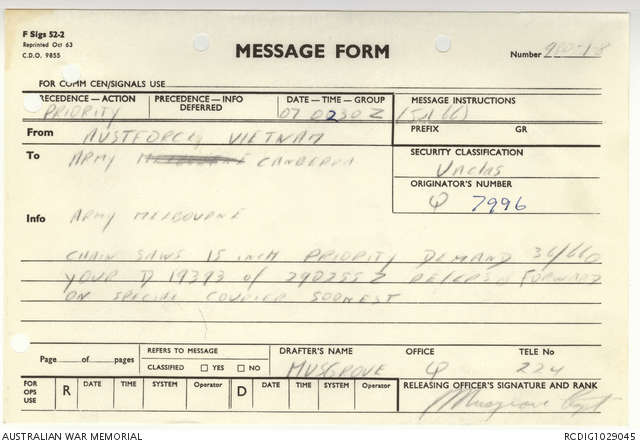 F Sigs 52-2
Reprinted Oct 63
C.D.O. 9855
MESSAGE FORM
Number 980-1-8
FOR COMM CEN/SIGNALS USE
RECEDENCE — ACTION PRECEDENCE — INFO DATE — TIME — GROUP MESSAGE INSTRUCTIONS
DEFERRED
PRIORITY 070230Z
PREFIX GR
From AUSTFORCE VIETNAM
To ARMY MELBOURNE CANBERRA
SECURITY CLASSIFICATION
Unclas
ORIGINATOR'S NUMBER
Q 7996
Info ARMY MELBOURNE
CHAIN SAWS 15 INCH PRIORITY DEMAND 36/66
YOUR D 19393 of 290255Z FORWARD
ON SPECIAL COURIER SOONEST
Page of pages
REFERS TO MESSAGE
CLASSIFIED YES NO
DRAFTER'S NAME OFFICE TELE No
MUSGROVE Q 224
FOR OPS USE R DATE TIME SYSTEM Operator D DATE TIME SYSTEM Operator RELEASING OFFICER'S SIGNATURE AND RANK
Musgrove Capt
AUSTRALIAN WAR MEMORIAL RCDIG1029045